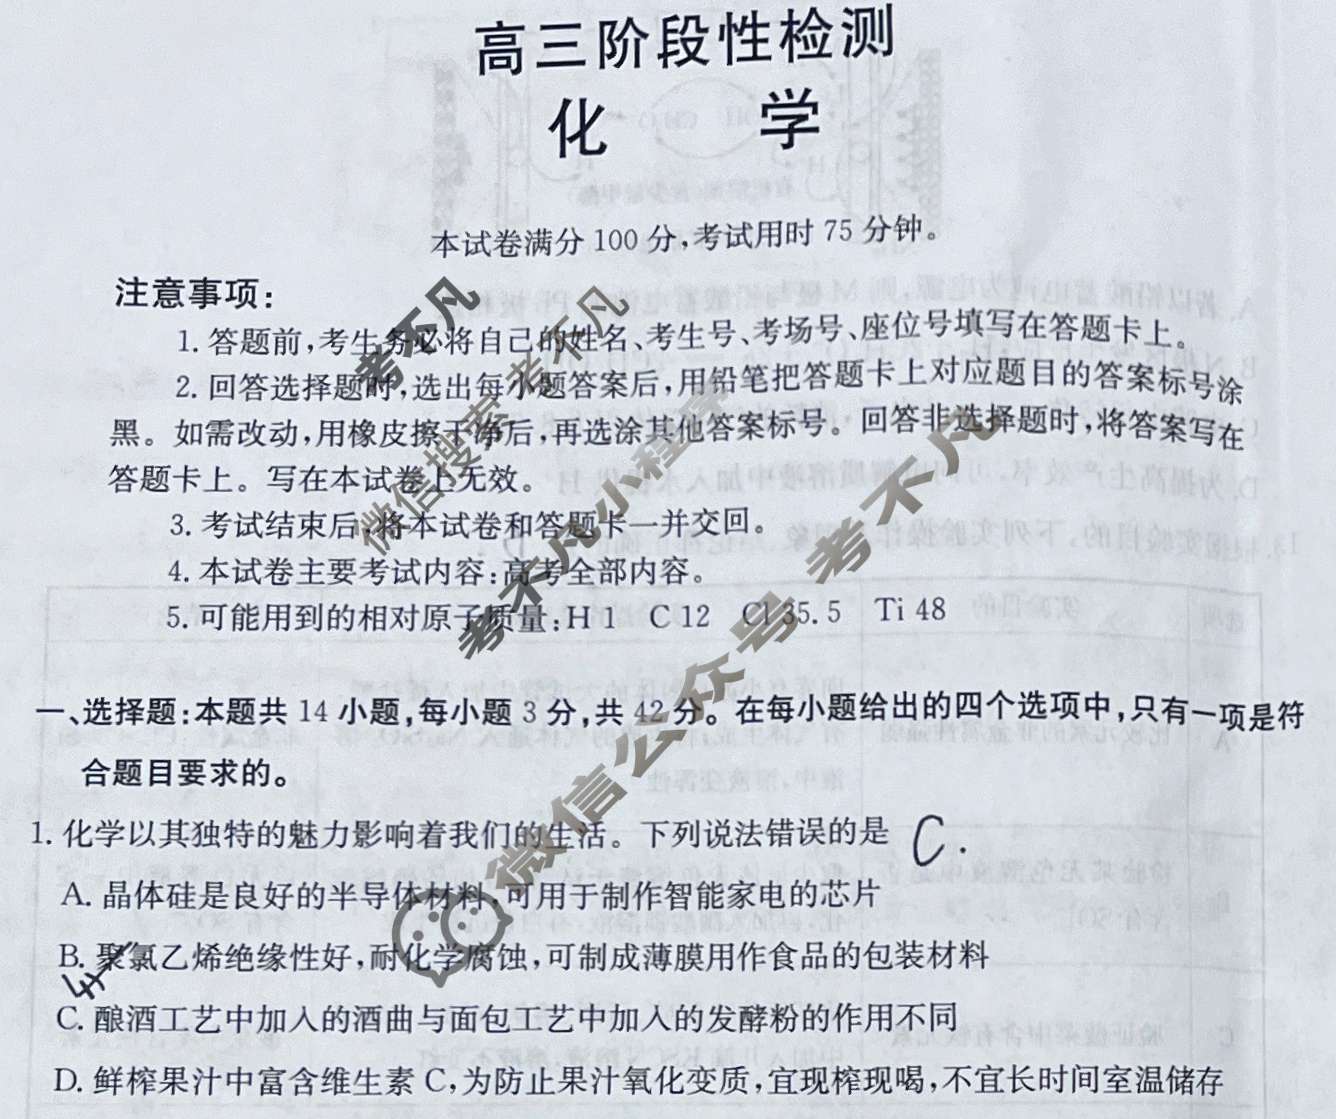 高三阶段性检测
化 学
本试卷满分 100 分,考试用时 75 分钟。
注意事项:
1. 答题前,考生务必将自己的姓名、考生号、考场号、座位号填写在答题卡上。
2. 回答选择题时,选出每小题答案后,用铅笔把答题卡上对应题目的答案标号涂
黑。如需改动,用橡皮擦干净后,再选涂其他答案标号。回答非选择题时,将答案写在
答题卡上。写在本试卷上无效。
3. 考试结束后,将本试卷和答题卡一并交回。
4. 本试卷主要考试内容:高考全部内容。
5. 可能用到的相对原子质量:H 1 C 12 Cl 35.5 Ti 48
一、选择题:本题共 14 小题,每小题 3 分,共 42 分。在每小题给出的四个选项中,只有一项是符
合题目要求的。
1. 化学以其独特的魅力影响着我们的生活。下列说法错误的是 C.
A. 晶体硅是良好的半导体材料,可用于制作智能家电的芯片
B. 聚氯乙烯绝缘性好,耐化学腐蚀,可制成薄膜用作食品的包装材料
C. 酿酒工艺中加入的酒曲与面包工艺中加入的发酵粉的作用不同
D. 鲜榨果汁中富含维生素 C,为防止果汁氧化变质,宜现榨现喝,不宜长时间室温储存
考不凡
微信搜索 考不凡
考不凡小程序
微信公众号 考不凡